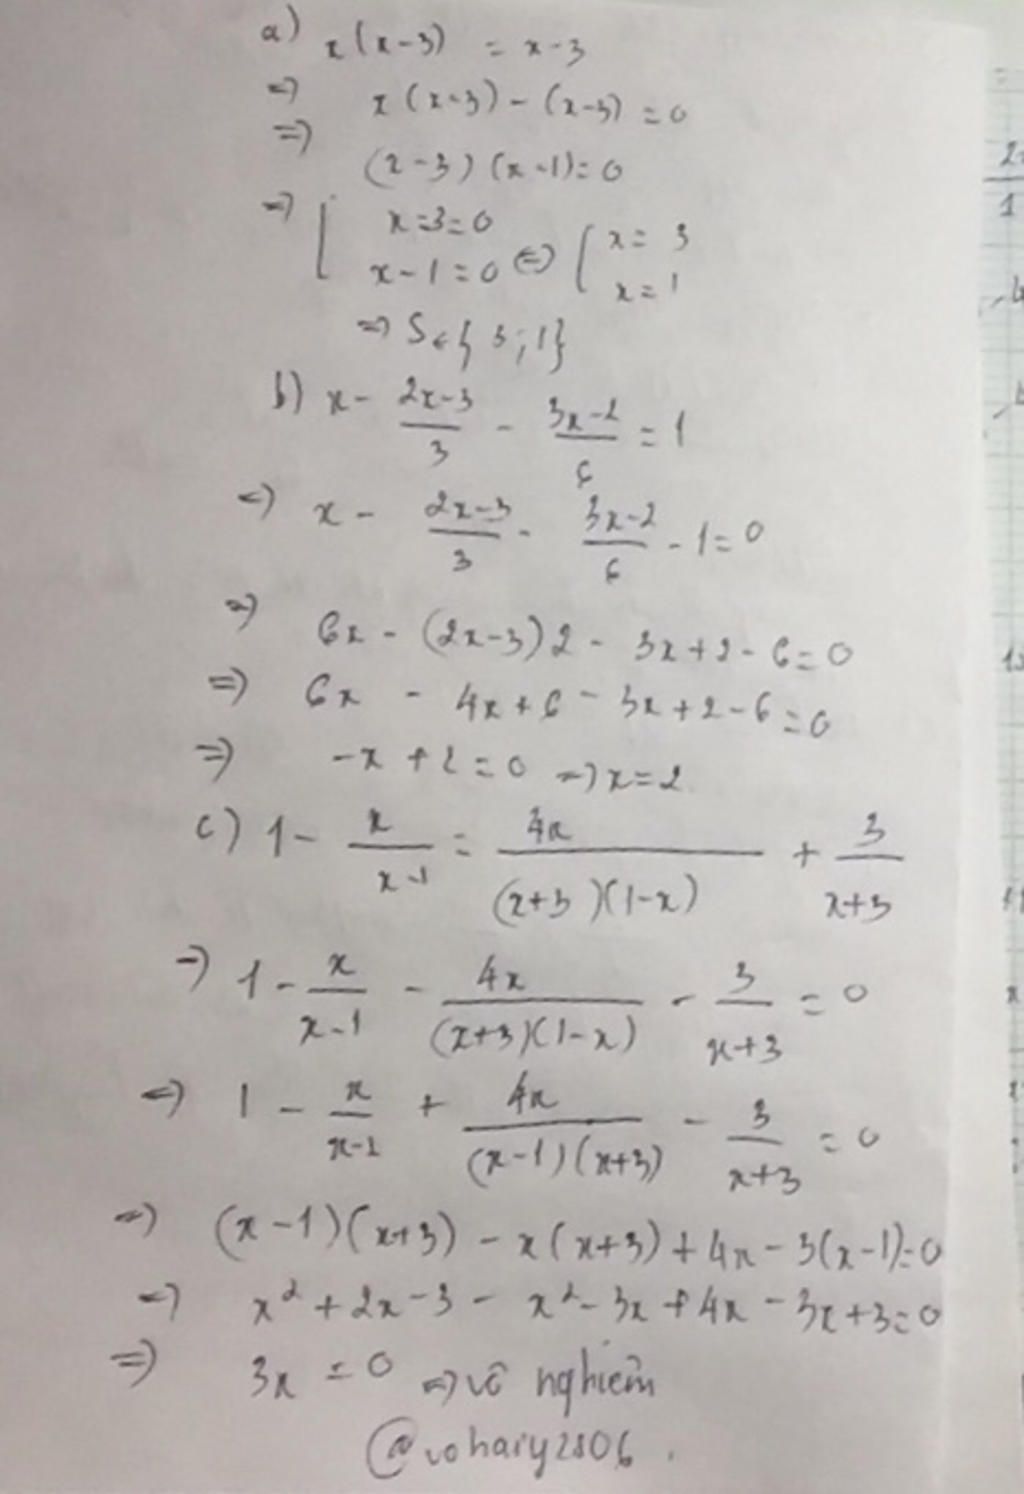 a) x(x-3) = x-3
=> x(x-3) - (x-3) = 0
=> (x-3)(x-1)=0
=> [ x=3=0
x-1=0 <=> [ x= 3
x=1
=> S ∈ { 3;1}
b) x - \frac{2x-3}{3} - \frac{3x-2}{6} = 1
=> x - \frac{2x-3}{3} - \frac{3x-2}{6} - 1=0
=> 6x - (2x-3)2 - 3x+2-6=0
=> 6x - 4x+6 - 3x+2-6=0
=> -x+2=0 => x=2
c) 1 - \frac{x}{x-1} = \frac{4x}{(x+3)(1-x)} + \frac{3}{x+3}
=> 1 - \frac{x}{x-1} - \frac{4x}{(x+3)(1-x)} - \frac{3}{x+3} = 0
=> 1 - \frac{x}{x-1} + \frac{4x}{(x-1)(x+3)} - \frac{3}{x+3} = 0
=> (x-1)(x+3) - x(x+3) + 4x - 3(x-1)=0
=> x²+2x-3 - x²-3x+4x-3x+3=0
=> 3x = 0 => vô nghiệm
@vohary2806.